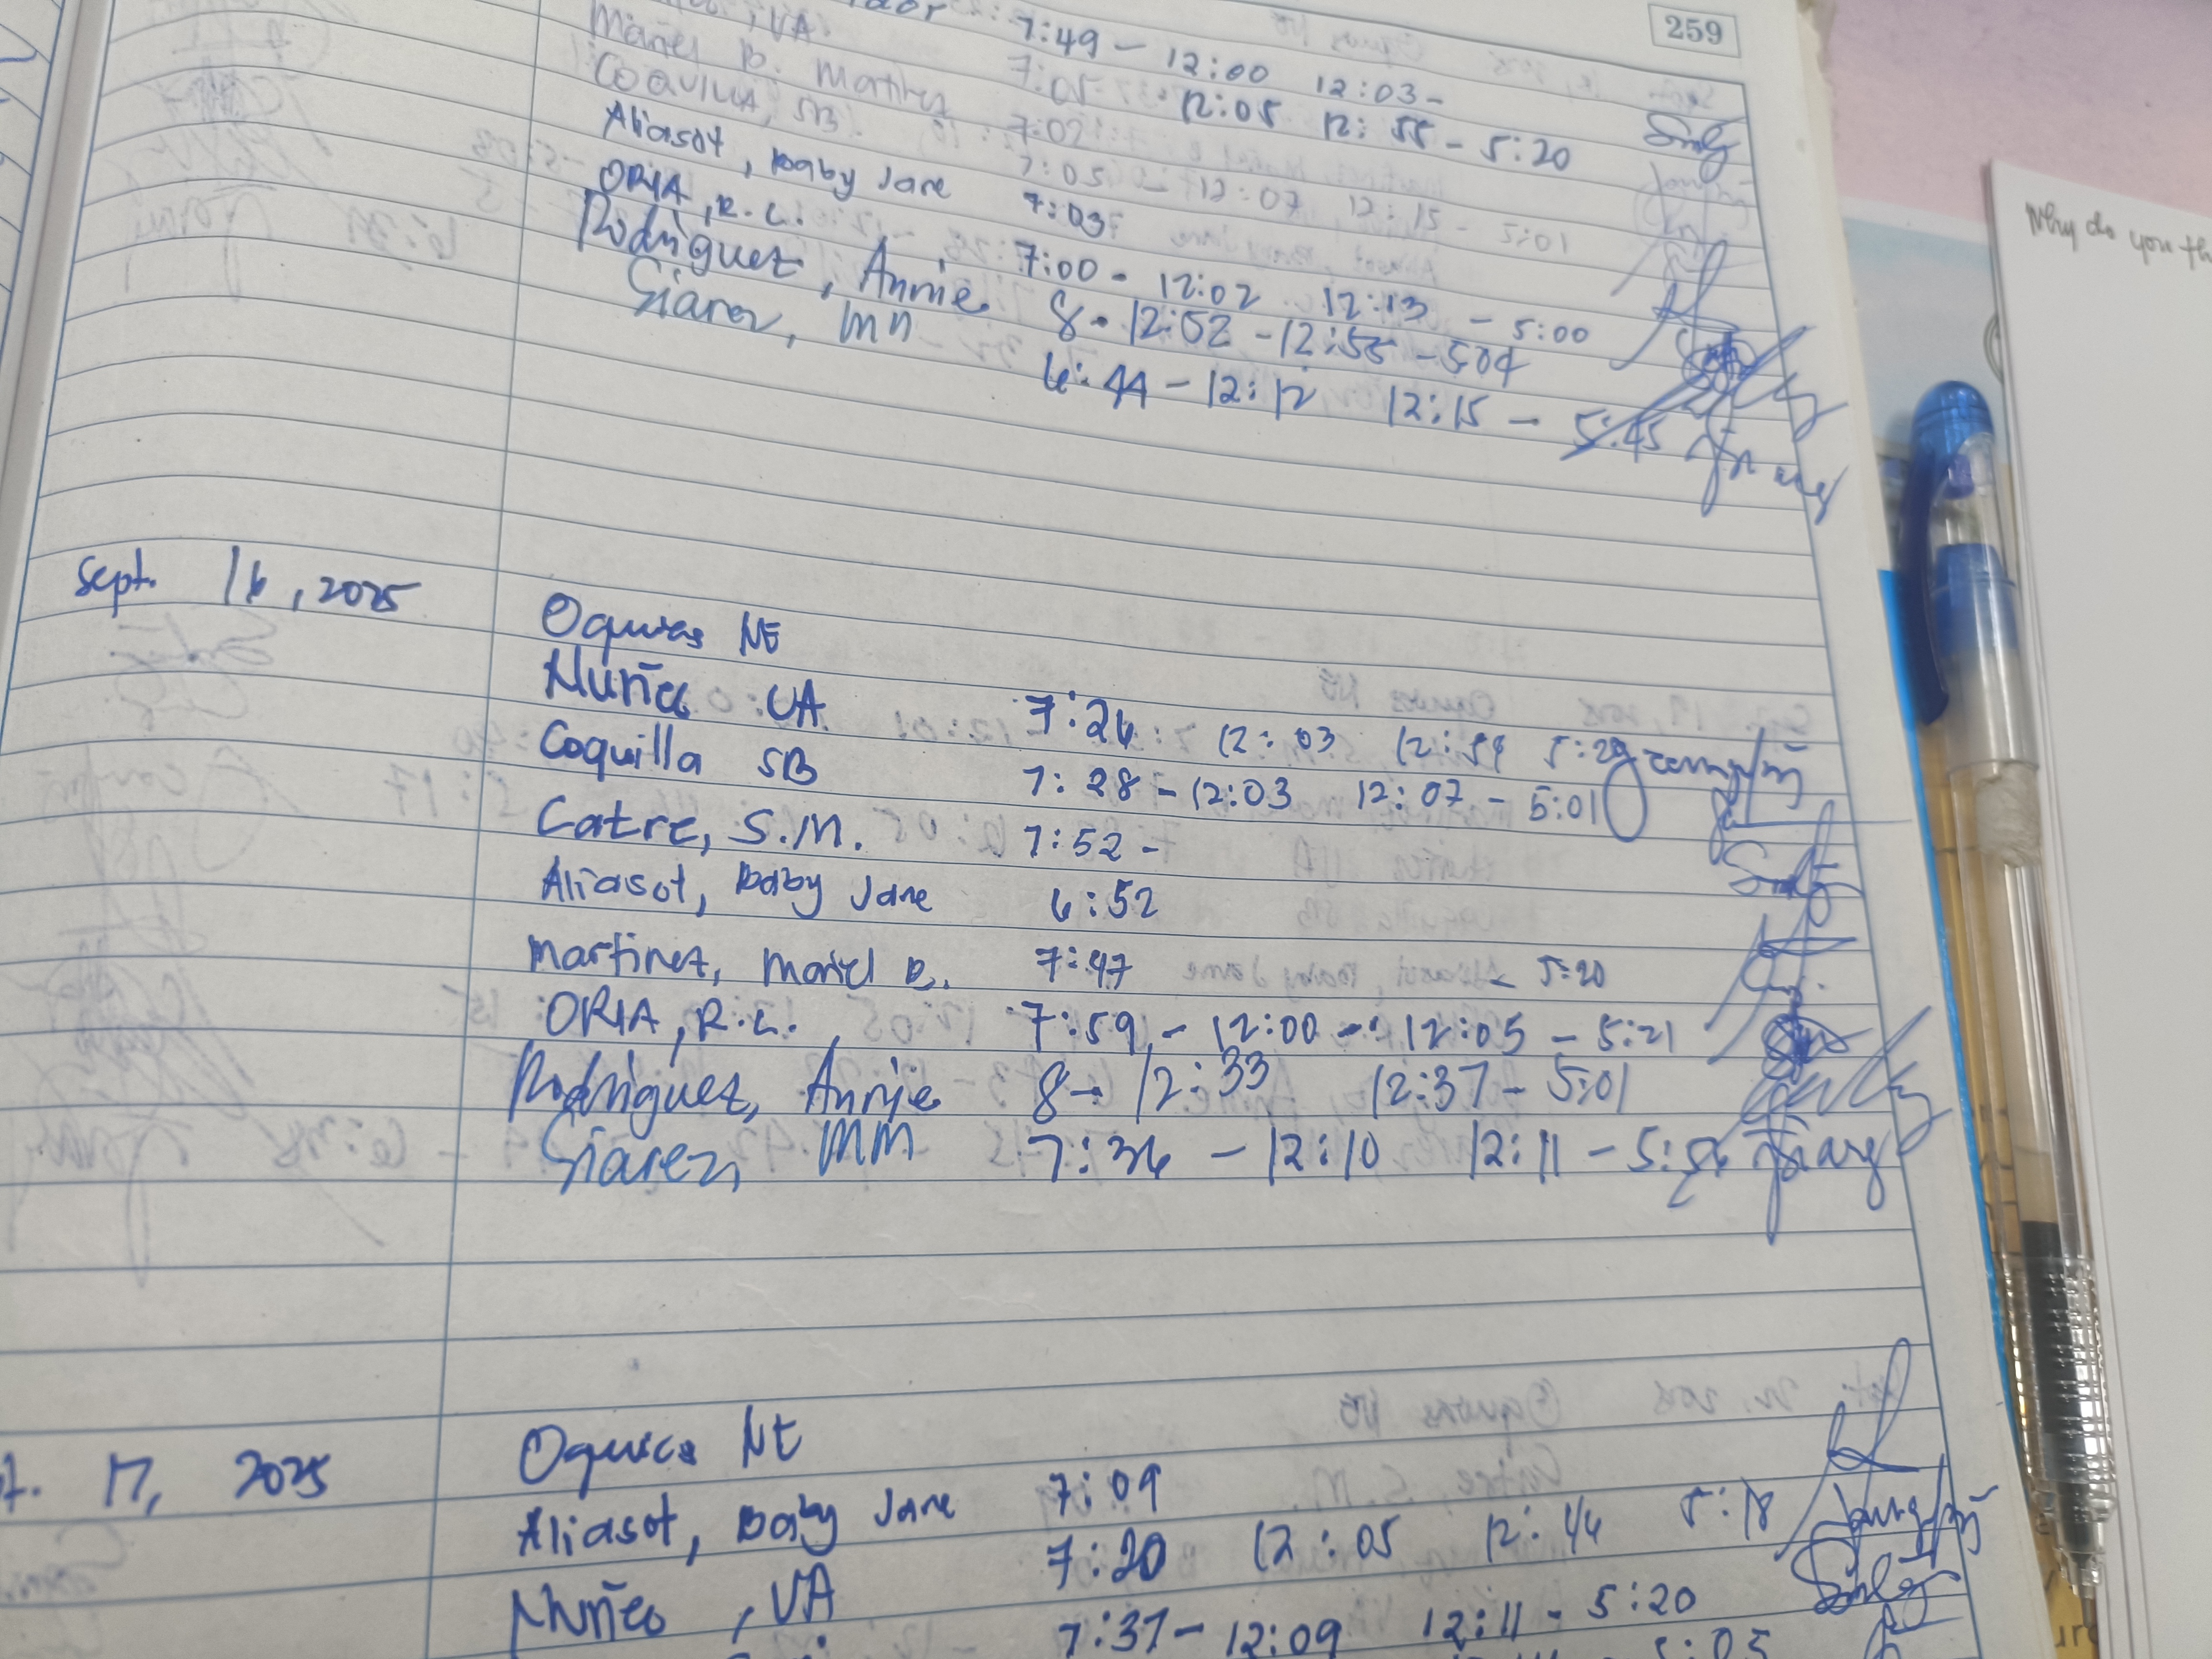 259
7:49 - 12:00 12:03 -
, VA 7:02 12:05 12:55 - 5:20
Mariel B. Martinez 7:02
COQUILLA, SB. 7:05 - 12:07 12:15 - 5:01
Aliasot, Baby Jane 7:03
ORIA, R.L. 7:00 - 12:02 12:13 - 5:00
Rodriguez, Annie 8 - 12:52 - 12:55 - 504
Siarez, MM 6:44 - 12:12 12:15 - 5:45
Why do you th
Sept. 16, 2025
Oquias NE
Muñez VA 7:26 12:03 12:59 5:29
Coquilla SB 7:28 - 12:03 12:07 - 5:01
Catre, S.M. 7:52 -
Aliasot, Baby Jane 6:52
Martinez, Mariel B. 7:47 - 5:20
ORIA, R.L. 7:59 - 12:00 - 12:05 - 5:21
Rodriguez, Annie 8 - 12:33 12:37 - 5:01
Siarez, MM 7:36 - 12:10 12:11 - 5:56
t. 17, 2025
Oquias NE
Aliasot, Baby Jane 7:09
Muñez, VA 7:20 12:05 12:46 5:18
7:37 - 12:09 12:11 - 5:20
5:05